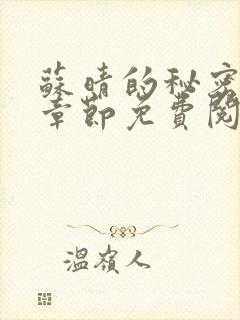 蘇晴的秘密
章節免費閱
溫嶺人